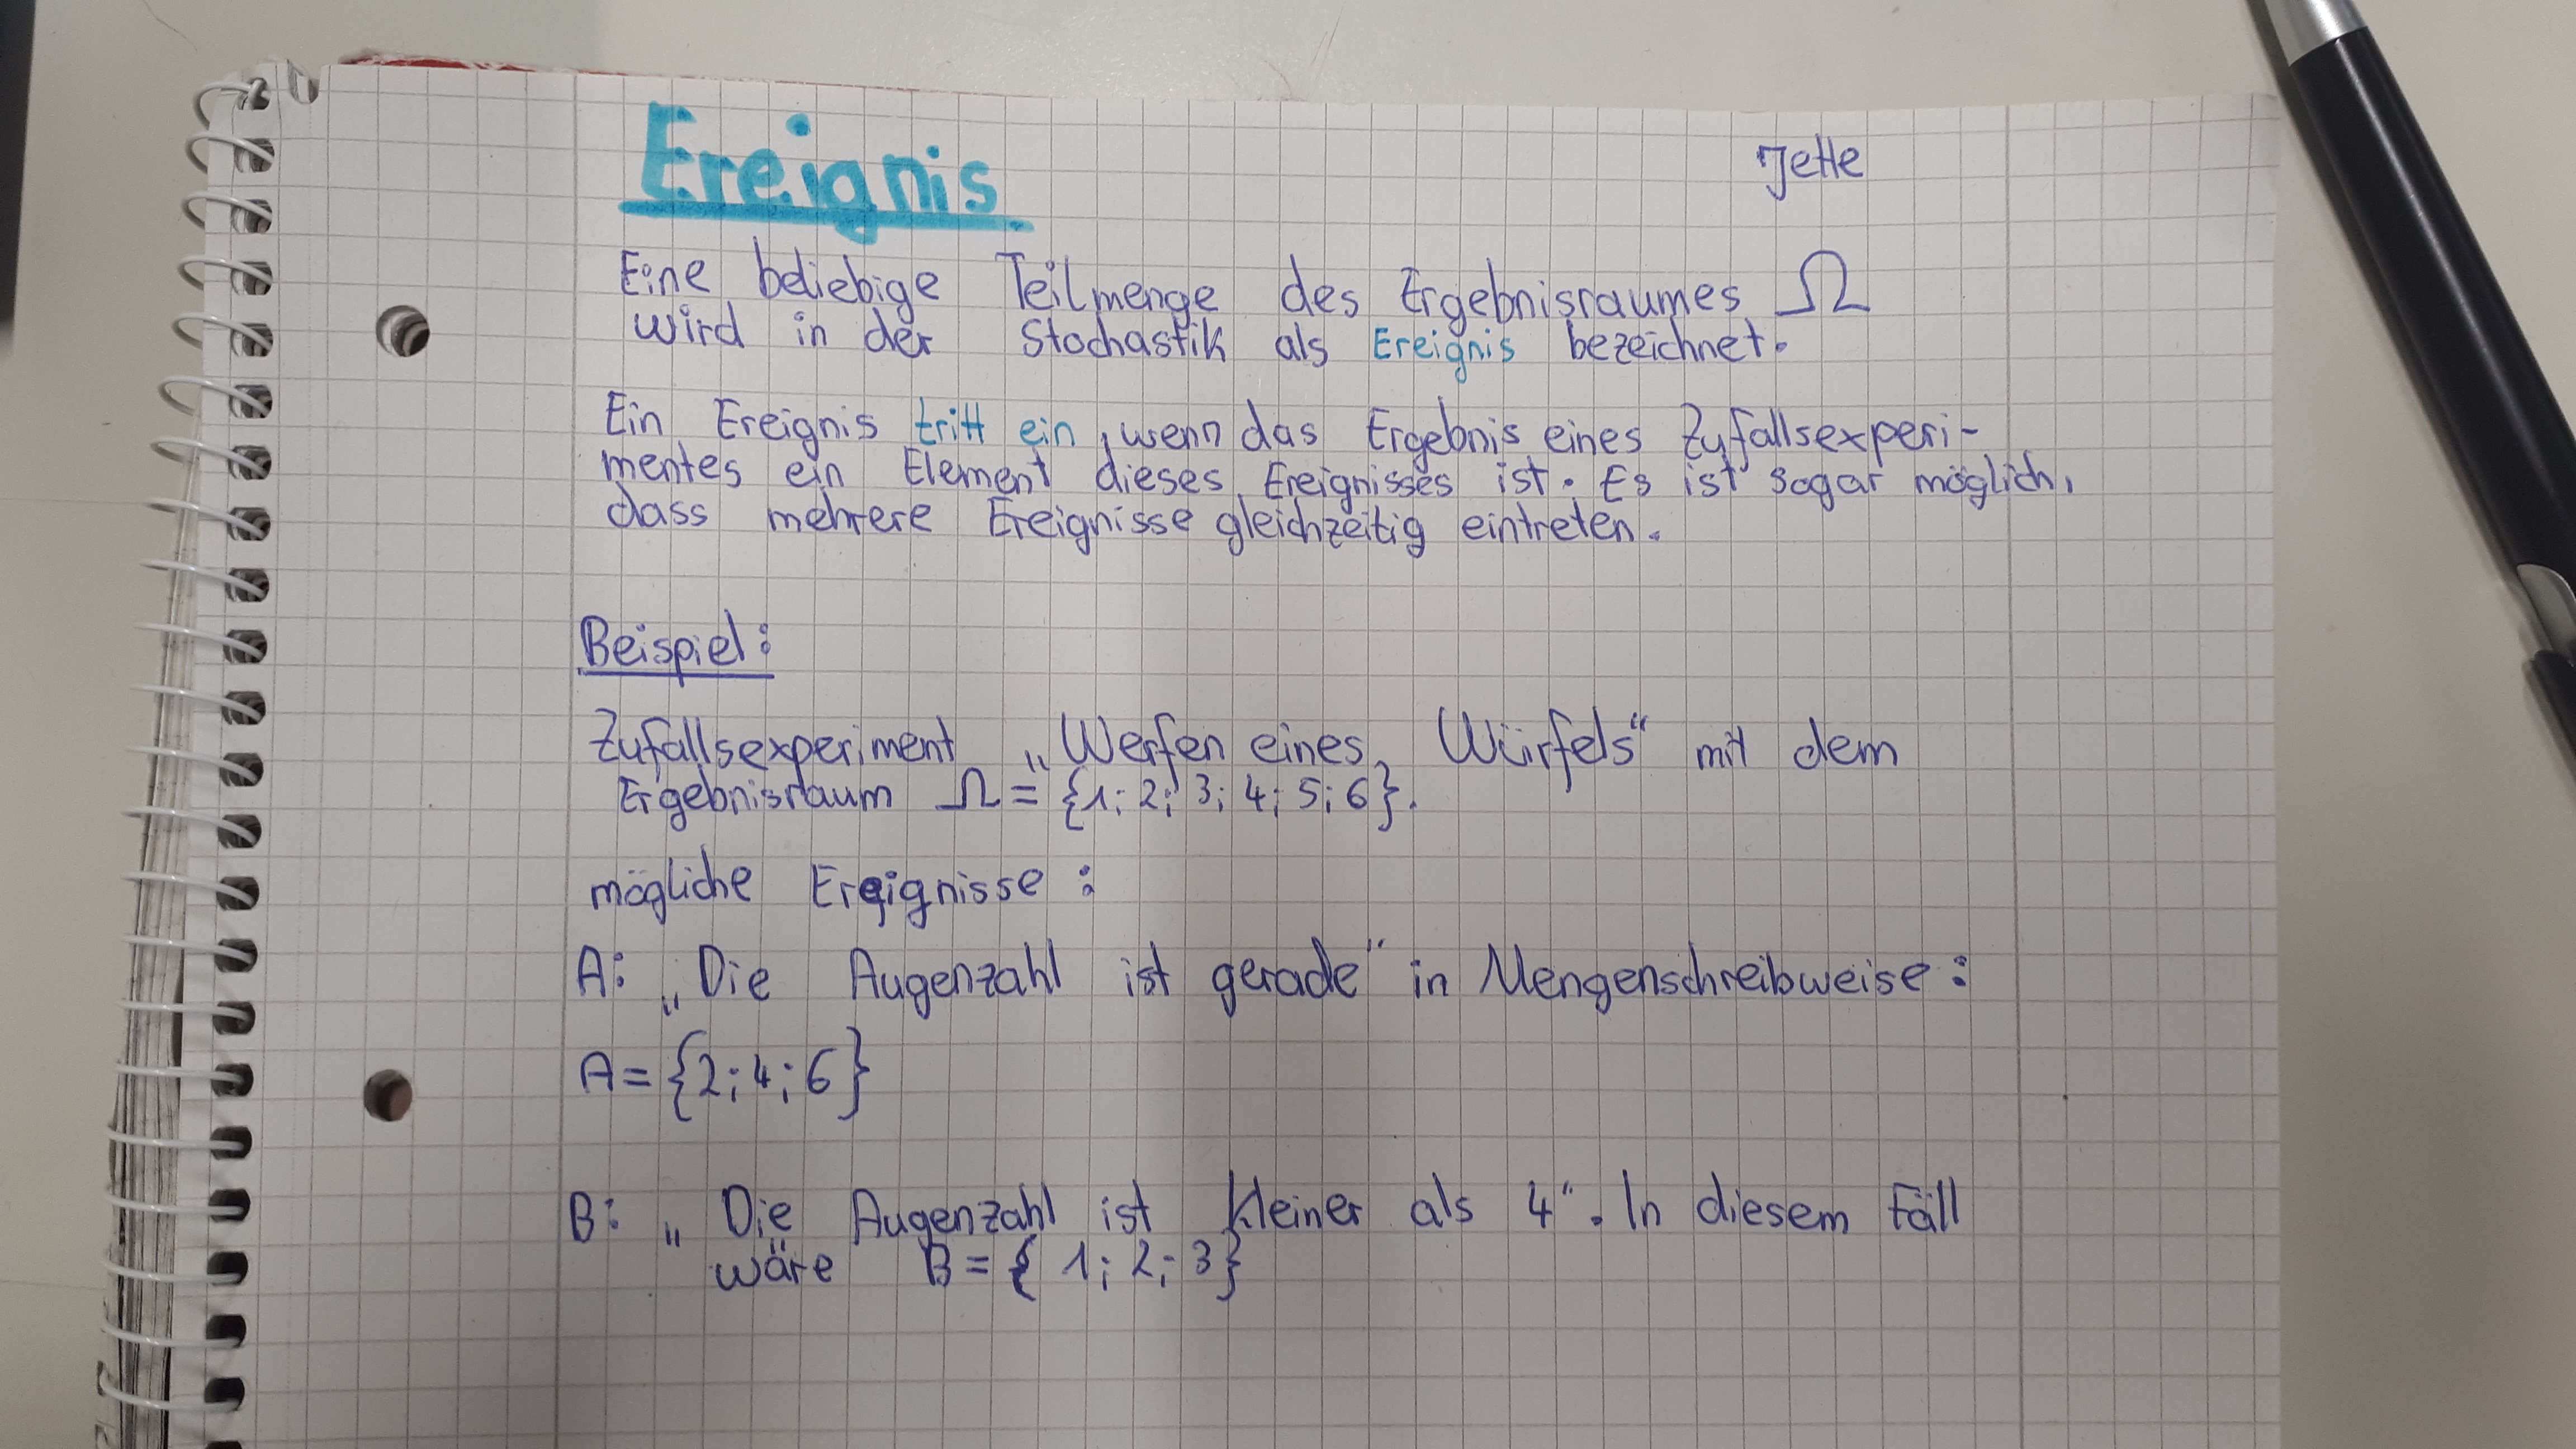 Ereignis
Jette
Eine beliebige Teilmenge des Ergebnisraumes Ω
wird in der Stochastik als Ereignis bezeichnet.
Ein Ereignis tritt ein, wenn das Ergebnis eines Zufallsexperi-
mentes ein Element dieses Ereignisses ist. Es ist sogar möglich,
dass mehrere Ereignisse gleichzeitig eintreten.
Beispiel:
Zufallsexperiment „Werfen eines Würfels“ mit dem
Ergebnisraum Ω = {1; 2; 3; 4; 5; 6}.
mögliche Ereignisse:
A: „Die Augenzahl ist gerade“ in Mengenschreibweise:
A = {2; 4; 6}
B: „Die Augenzahl ist kleiner als 4“. In diesem Fall
wäre B = { 1; 2; 3}